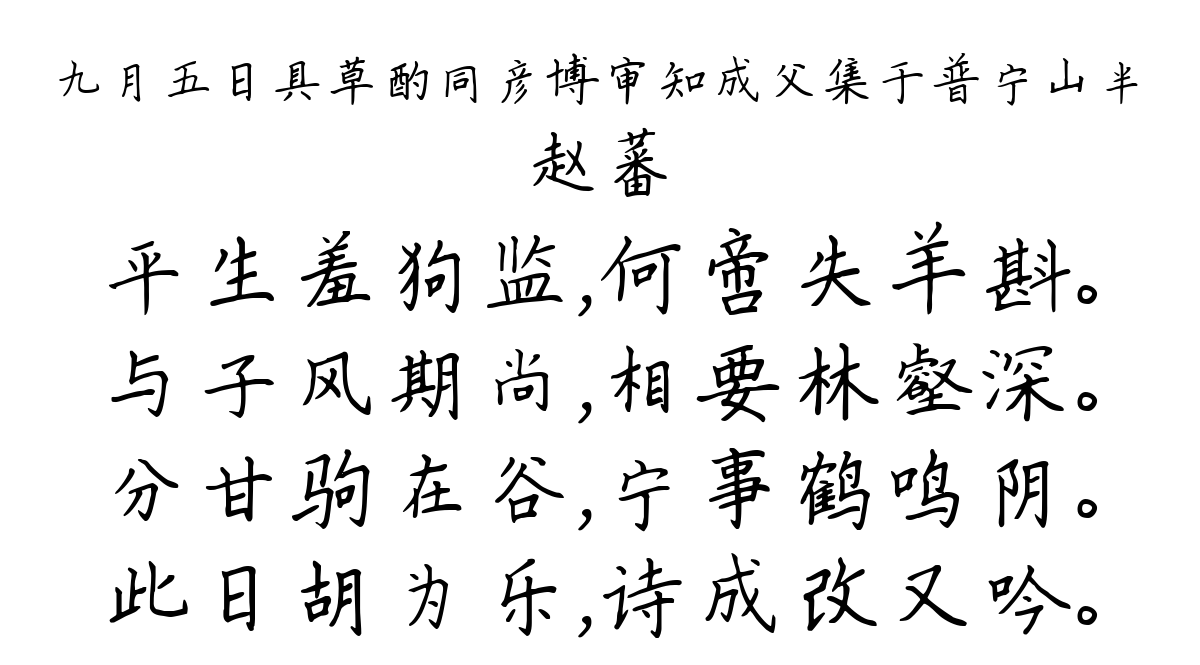 九月五日具草酌同彦博审知成父集于普宁山半
赵蕃
平生羞狗监,何啻失羊斟。
与子风期尚,相要林壑深。
分甘驹在谷,宁事鹤鸣阴。
此日胡为乐,诗成改又吟。